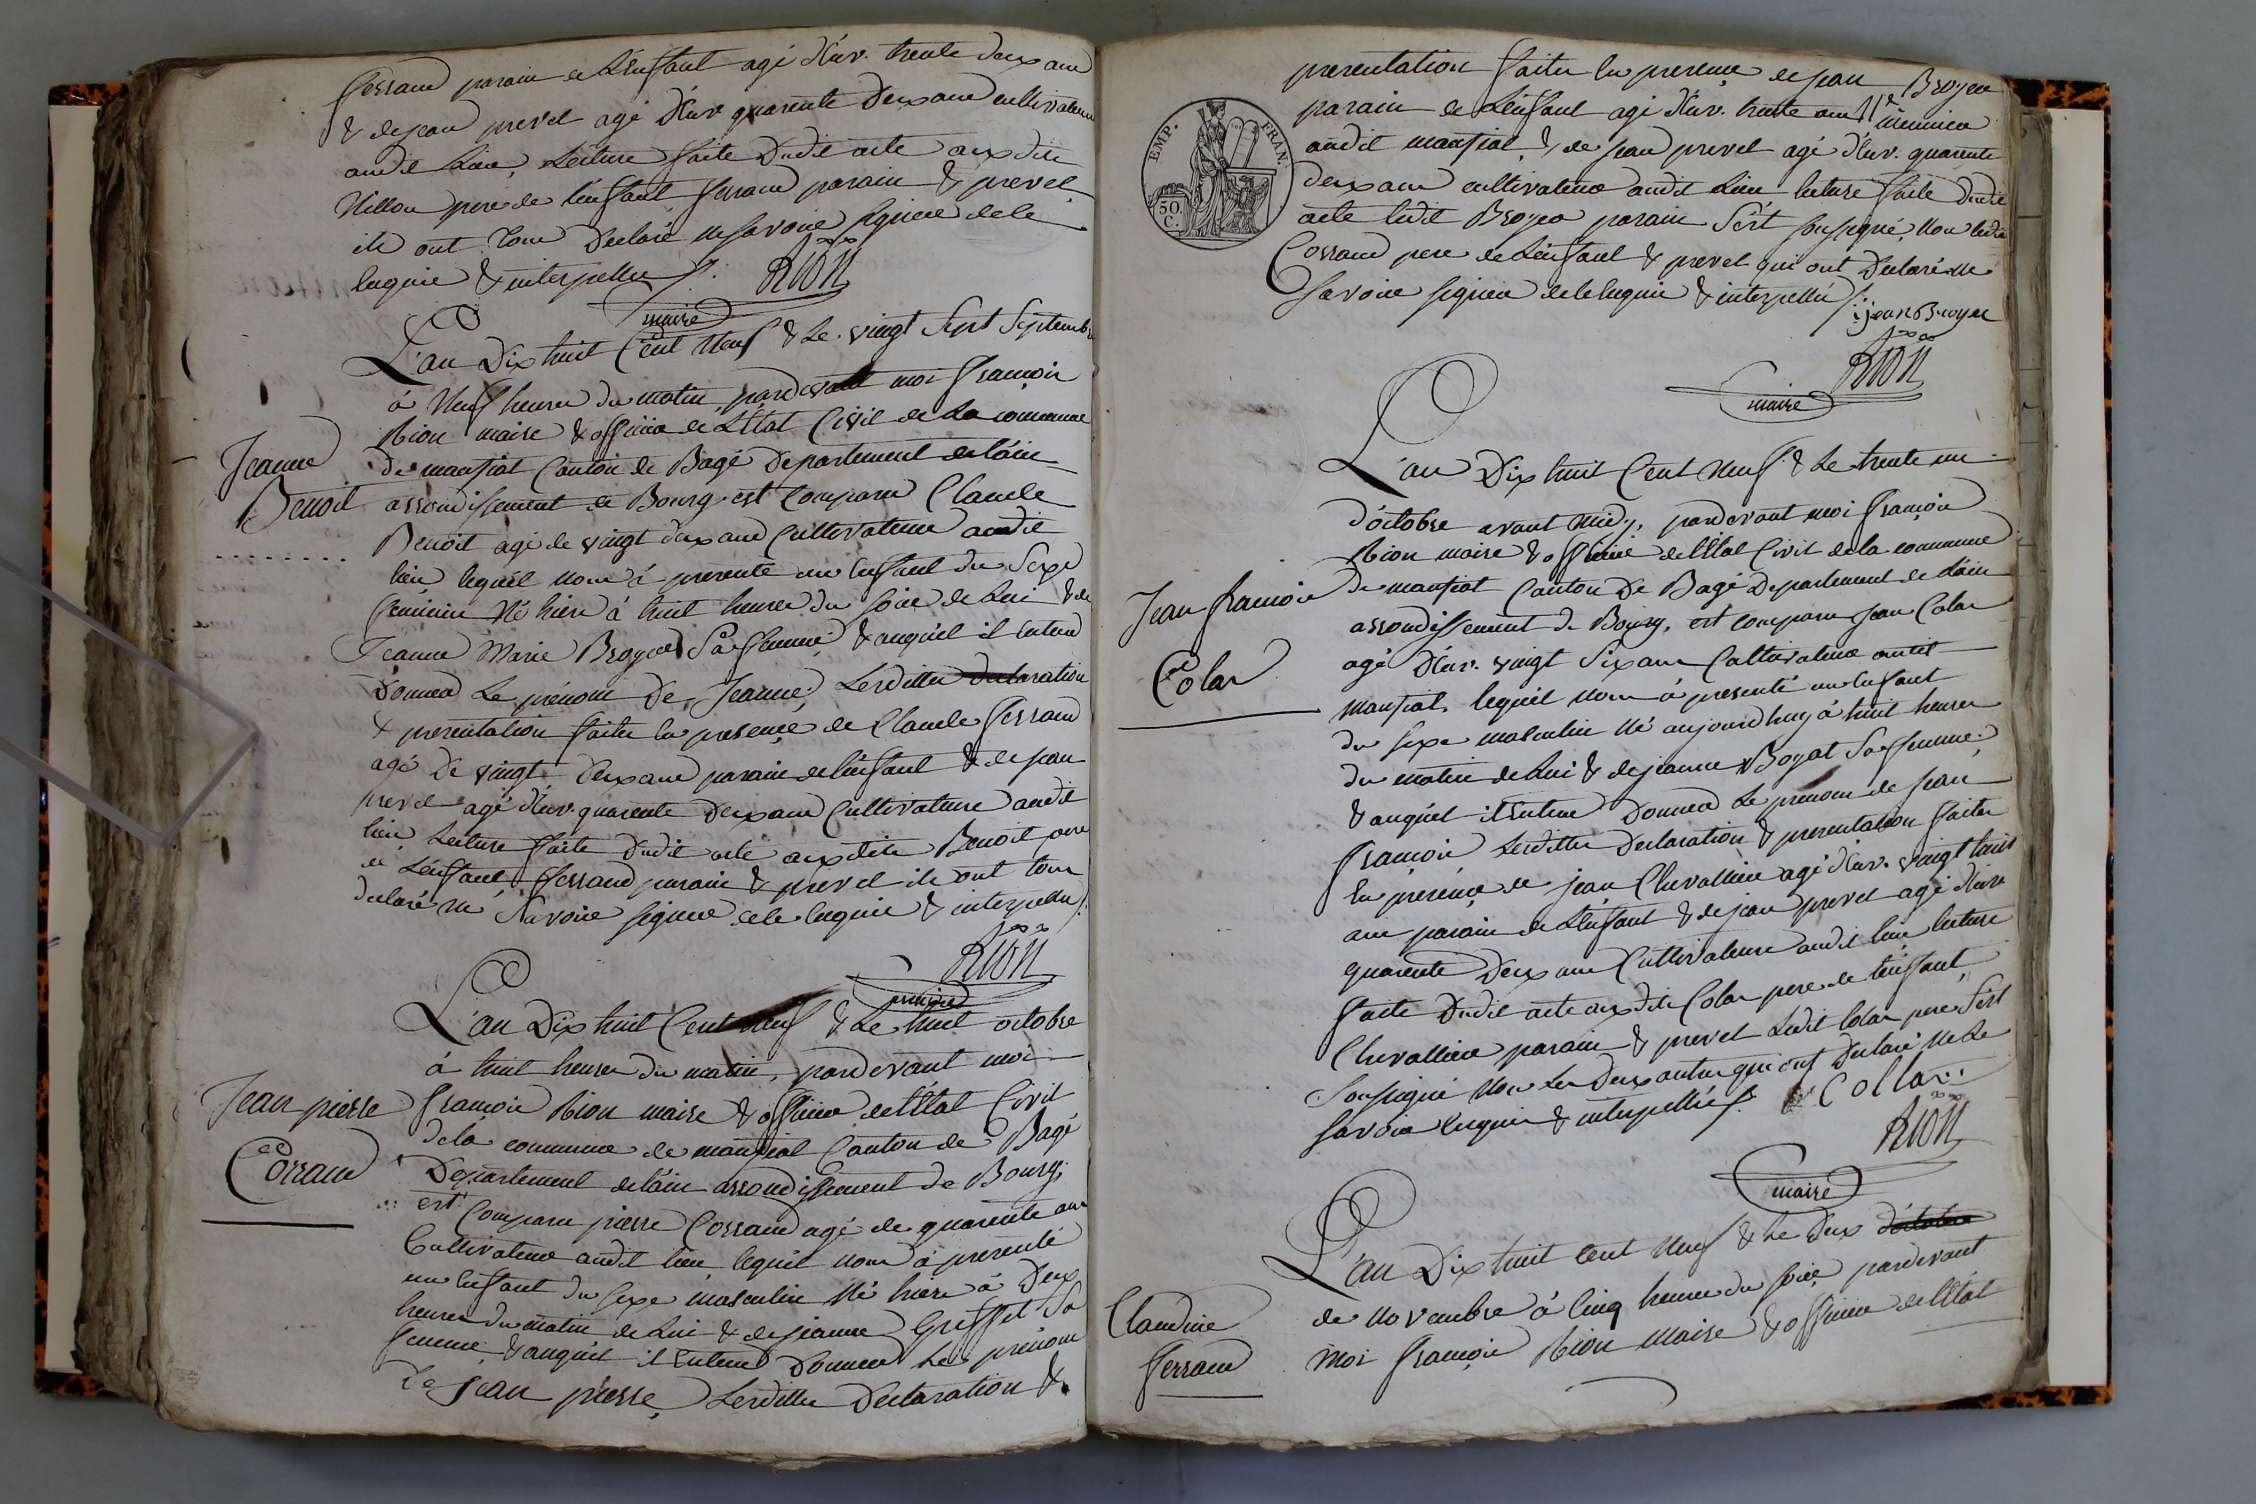 ferrand parain de L'enfant agé d'env. trente deux ans
& de jean prevel agé d'env quarente deux ans cultivateur
audit Lieu, Lecture faite dudit acte auxdits
Villon pere de l'enfant ferrand parain & prevel
ils ont tous declaré ne savoir signer de ce
enquis & interpellés ./.
Rion
maire
L'an dix huit Cent Neuf & Le vingt Sept Septembre
à Neuf heures du matin pardevant moi françois
Rion maire & officier de L'Etat Civil de La commune
de manziat Canton de Bagé departement de l'ain
arrondissement de Bourg est comparu Claude
Benoit agé de vingt deux ans Cultivateur audit
lieu lequel nous à presenté un enfant du Sexe
feminin Né hier à huit heures du soir de Lui & de
Jeanne Marie Broyer Sa femme, & auquel il entend
donner Le prénom De Jeanne, Lesdittes declaration
& presentation faites en presence de Claude ferrand
agé De vingt deux ans parain de l'enfant & de jean
prevel agé d'env. quarente deux ans Cultivateur audit
lieu, Lecture faite dudit acte auxdits Benoit pere
de L'enfant ferrand parain & prevel ils ont tous
declaré ne Savoir signer de ce enquis & interpellés ./.
Rion
maire
Jeanne
Benoit
L'an Dix huit Cent neuf & Le huit octobre
à huit heures du matin, pardevant moi
françois Rion maire & officier de L'Etat Civil
de la commune de manziat Canton de Bagé
Departement de l'ain arrondissement de Bourg
est Comparu pierre Corrand agé de quarente ans
Cultivateur audit lieu lequel nous à presenté
un enfant du sexe masculin Né hier à Deux
heures du matin de Lui & de jeanne Greffet Sa
femme, & auquel il entend Donner Les prénom
De Jean pierre, Lesdittes Declaration &
Jean pierre
Corrand
EMP. FRAN.
50.
C.
presentation faites en presence de jean Broyer
parain de L'enfant agé d'env. trente ans meunier
audit manziat & de jean prevel agé d'env. quarente
deux ans cultivateur audit Lieu lecture faite dudit
acte ledit Broyer parain s'est soussigné, Non ledit
Corrand pere de L'enfant & prevel qui ont declaré ne
savoir signer de ce enquis & interpellés ./.
jean Broyer
Rion
maire
L'an Dix huit Cent Neuf & Le trente un
d'octobre avant midy, pardevant moi françois
Rion maire & officier de L'Etat Civil de la commune
de manziat Canton De Bagé Departement de L'ain
arrondissement de Bourg, est comparu Jean Colas
agé d'env. vingt Six ans Cultivateur audit
manziat, lequel nous à presenté un enfant
du sexe masculin Né aujourdhuy à huit heures
du matin de Lui & de jeanne Boyat Sa femme,
& auquel il entend Donner Le prenom de Jean
françois Lesdittes Declaration & presentation faites
en presence de jean Chevallier agé d'env. vingt trois
ans parain de L'enfant & de jean prevel agé d'env
quarente Deux ans Cultivateur audit lieu lecture
faite Dudit acte auxdits Colas pere de l'enfant,
Chevallier parain & prevel Ledit Colas pere s'est
Soussigné Non Les Deux autres qui ont Declaré ne le
savoir enquis & interpellés ./. Collas
Rion
maire
Jean françois
Colas
L'an Dix huit Cent Neuf & Le Deux d'octobre
de Novembre à Cinq heures du soir, pardevant
moi françois Rion maire & officier de L'Etat
Claudine
ferrand